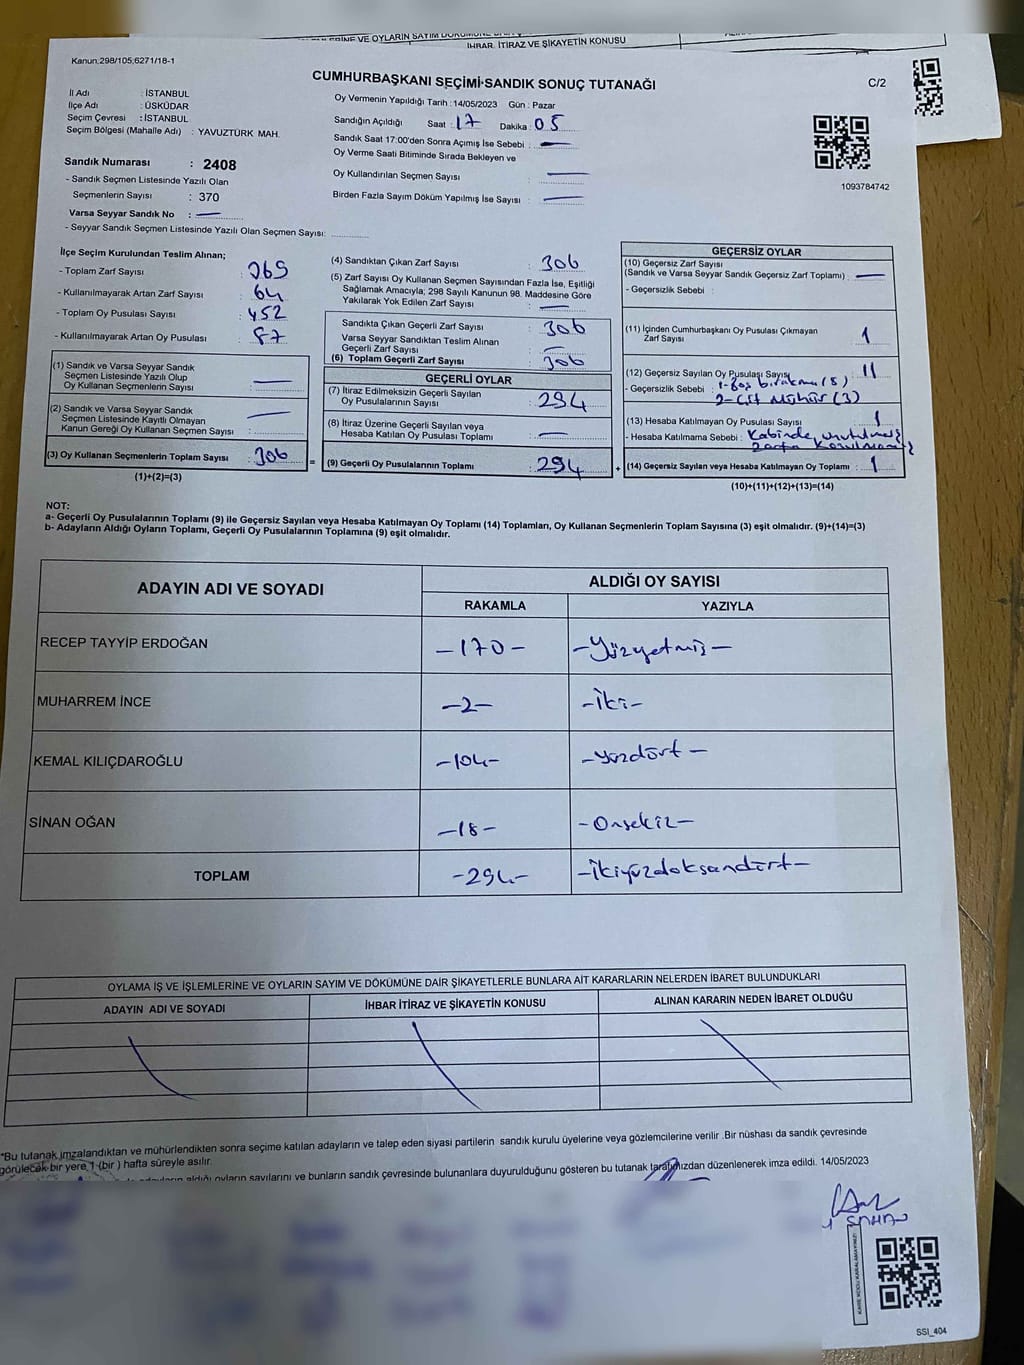 İHBAR, İTİRAZ VE ŞİKAYETİN KONUSU
Kanun:298/105;6271/18-1
CUMHURBAŞKANI SEÇİMİ-SANDIK SONUÇ TUTANAĞI
C/2
İl Adı : İSTANBUL
İlçe Adı : ÜSKÜDAR
Seçim Çevresi : İSTANBUL
Seçim Bölgesi (Mahalle Adı) : YAVUZTÜRK MAH.
Sandık Numarası : 2408
- Sandık Seçmen Listesinde Yazılı Olan
Seçmenlerin Sayısı : 370
Varsa Seyyar Sandık No : —
- Seyyar Sandık Seçmen Listesinde Yazılı Olan Seçmen Sayısı:
Oy Vermenin Yapıldığı Tarih : 14/05/2023 Gün : Pazar
Sandığın Açıldığı Saat : 17 Dakika : 05
Sandık Saat 17:00'den Sonra Açımış İse Sebebi : —
Oy Verme Saati Bitiminde Sırada Bekleyen ve
Oy Kullandırılan Seçmen Sayısı : —
Birden Fazla Sayım Döküm Yapılmış İse Sayısı : —
1093784742
İlçe Seçim Kurulundan Teslim Alınan;
- Toplam Zarf Sayısı
- Kullanılmayarak Artan Zarf Sayısı : 64
- Toplam Oy Pusulası Sayısı : 452
- Kullanılmayarak Artan Oy Pusulası : 87
(1) Sandık ve Varsa Seyyar Sandık
Seçmen Listesinde Yazılı Olup
Oy Kullanan Seçmenlerin Sayısı : —
(2) Sandık ve Varsa Seyyar Sandık
Seçmen Listesinde Kayıtlı Olmayan
Kanun Gereği Oy Kullanan Seçmen Sayısı : —
(3) Oy Kullanan Seçmenlerin Toplam Sayısı : 306
(1)+(2)=(3)
(4) Sandıktan Çıkan Zarf Sayısı : 306
(5) Zarf Sayısı Oy Kullanan Seçmen Sayısından Fazla İse, Eşitliği
Sağlamak Amacıyla; 298 Sayılı Kanunun 98. Maddesine Göre
Yakılarak Yok Edilen Zarf Sayısı : —
Sandıkta Çıkan Geçerli Zarf Sayısı : 306
Varsa Seyyar Sandıktan Teslim Alınan
Geçerli Zarf Sayısı : —
(6) Toplam Geçerli Zarf Sayısı : 306
GEÇERLİ OYLAR
(7) İtiraz Edilmeksizin Geçerli Sayılan
Oy Pusulalarının Sayısı : 294
(8) İtiraz Üzerine Geçerli Sayılan veya
Hesaba Katılan Oy Pusulası Toplamı : —
= (9) Geçerli Oy Pusulalarının Toplamı : 294
GEÇERSİZ OYLAR
(10) Geçersiz Zarf Sayısı
(Sandık ve Varsa Seyyar Sandık Geçersiz Zarf Toplamı) : —
- Geçersizlik Sebebi :
(11) İçinden Cumhurbaşkanı Oy Pusulası Çıkmayan
Zarf Sayısı : 1
(12) Geçersiz Sayılan Oy Pusulası Sayısı : 11
- Geçersizlik Sebebi : 1-Boş bırakma (8)
2-Çift Mühür (3)
(13) Hesaba Katılmayan Oy Pusulası Sayısı : 1
- Hesaba Katılmama Sebebi : Kabinde unutulmuş
+ (14) Geçersiz Sayılan veya Hesaba Katılmayan Oy Toplamı : 1
(10)+(11)+(12)+(13)=(14)
NOT:
a- Geçerli Oy Pusulalarının Toplamı (9) ile Geçersiz Sayılan veya Hesaba Katılmayan Oy Toplamı (14) Toplamları, Oy Kullanan Seçmenlerin Toplam Sayısına (3) eşit olmalıdır. (9)+(14)=(3)
b- Adayların Aldığı Oyların Toplamı, Geçerli Oy Pusulalarının Toplamına (9) eşit olmalıdır.
ADAYIN ADI VE SOYADI
ALDIĞI OY SAYISI
RAKAMLA YAZIYLA
RECEP TAYYİP ERDOĞAN -170- -Yüzyetmiş-
MUHARREM İNCE -2- -İki-
KEMAL KILIÇDAROĞLU -104- -Yüzdört-
SİNAN OĞAN -18- -Onsekiz-
TOPLAM -294- -İkiyüzdoksandört-
OYLAMA İŞ VE İŞLEMLERİNE VE OYLARIN SAYIM VE DÖKÜMÜNE DAİR ŞİKAYETLERLE BUNLARA AİT KARARLARIN NELERDEN İBARET BULUNDUKLARI
ADAYIN ADI VE SOYADI İHBAR İTİRAZ VE ŞİKAYETİN KONUSU ALINAN KARARIN NEDEN İBARET OLDUĞU
"Bu tutanak imzalandıktan ve mühürlendikten sonra seçime katılan adayların ve talep eden siyasi partilerin sandık kurulu üyelerine veya gözlemcilerine verilir .Bir nüshası da sandık çevresinde
görülecek bir yere 1 (bir ) hafta süreyle asılır.
aldığı oyların sayılarını ve bunların sandık çevresinde bulunanlara duyurulduğunu gösteren bu tutanak tarafımızdan düzenlenerek imza edildi. 14/05/2023
KARE KODU KARALAMAYINIZ
SSI_404